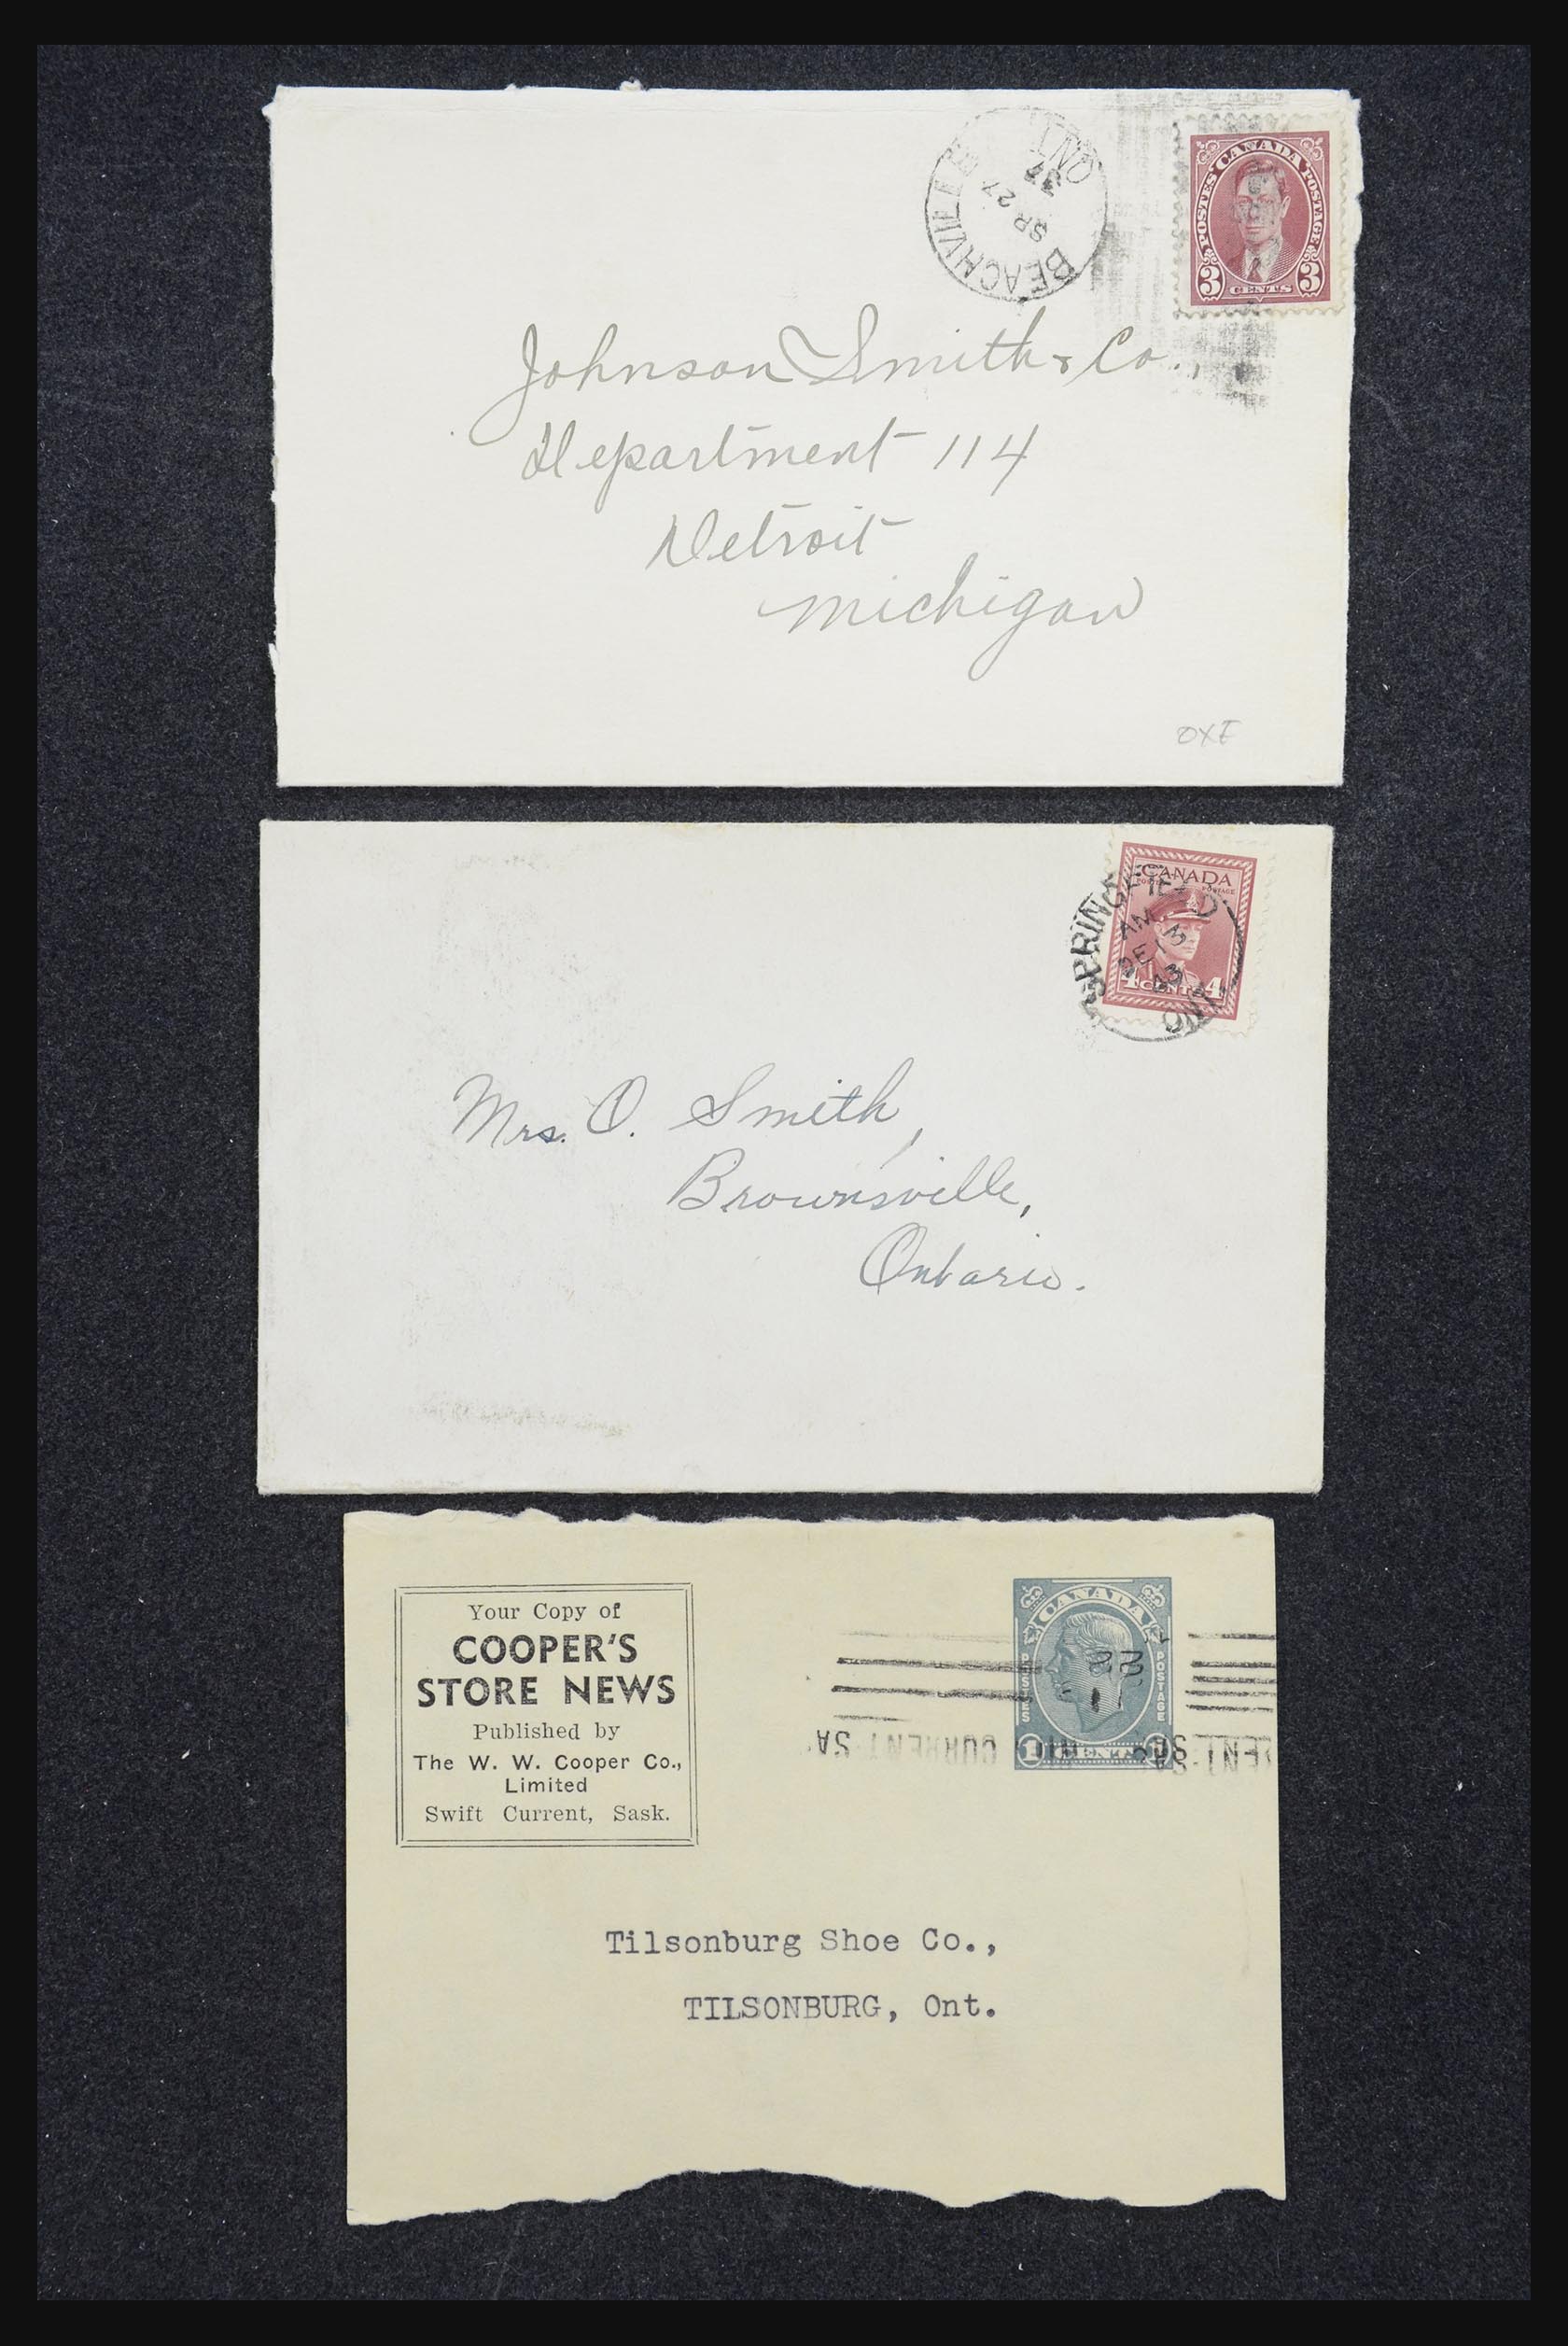 BEACHVILLE
SP 27
37
ONT
POSTES CANADA POSTAGE
3 CENTS 3
Johnson Smith & Co.,
Department 114
Detroit
Michigan
OXF
SPRINGFIELD
AM
DE 13
43
ONT
CANADA
POSTES POSTAGE
4 CENTS 4
Mrs. O. Smith,
Brownsville,
Ontario.
Your Copy of
COOPER'S
STORE NEWS
Published by
The W. W. Cooper Co.,
Limited
Swift Current, Sask.
CANADA
POSTES POSTAGE
1 CENT 1
22
CURRENT SA
RENT-SAS
Tilsonburg Shoe Co.,
TILSONBURG, Ont.